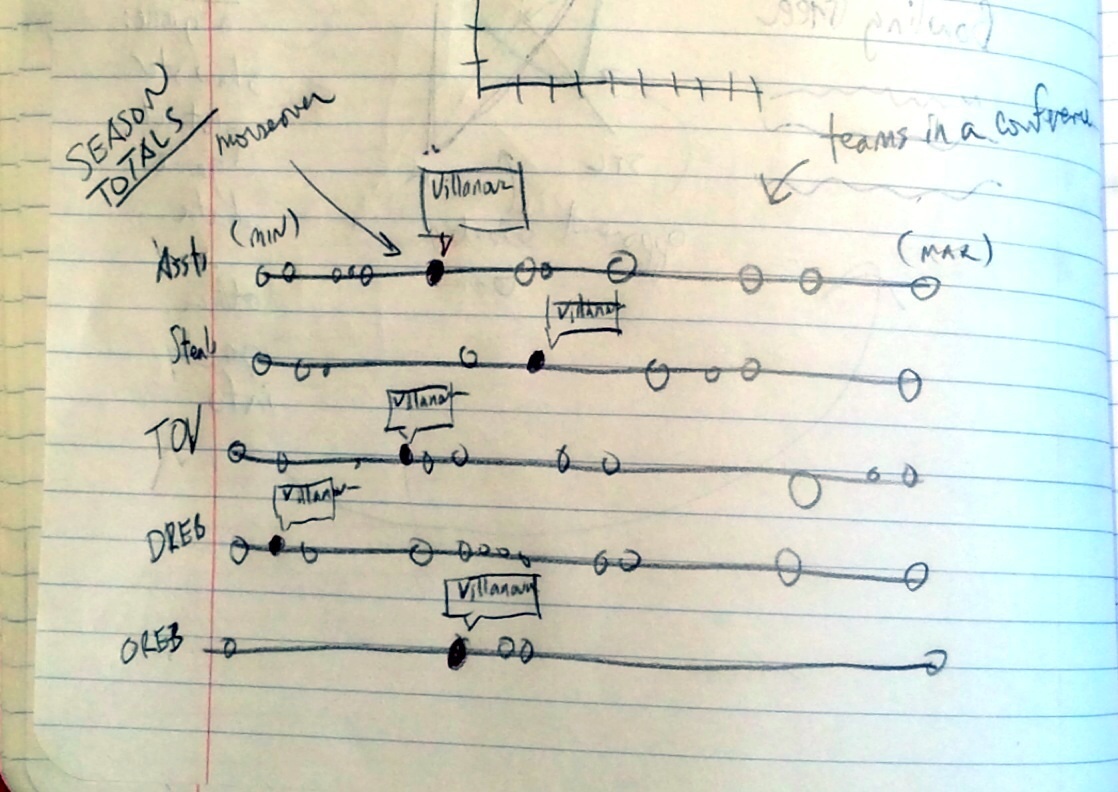 SEASON
TOTALS
moiseover
teams in a conference
Villanova
(MIN)
(MAX)
Assts
Villanova
Steal
Villanova
TOV
Villanova
DREB
Villanova
OREB